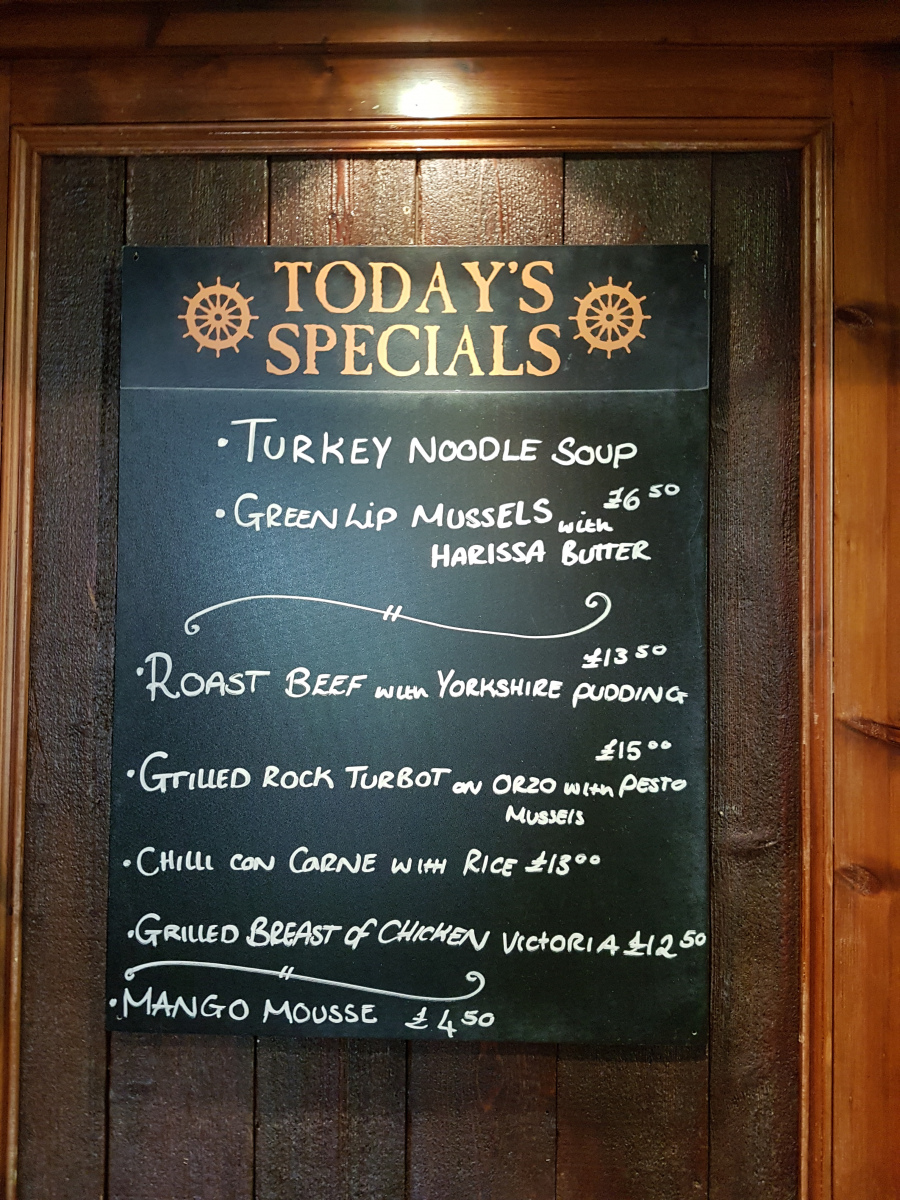 TODAY'S
SPECIALS
• TURKEY NOODLE SOUP
• GREEN LIP MUSSELS with £6 50
HARISSA BUTTER
£13 50
• ROAST BEEF with YORKSHIRE PUDDING
£15 00
• GRILLED ROCK TURBOT on ORZO with PESTO
MUSSELS
• CHILLI CON CARNE WITH RICE £13 00
• GRILLED BREAST of CHICKEN VICTORIA £12 50
• MANGO MOUSSE £4 50